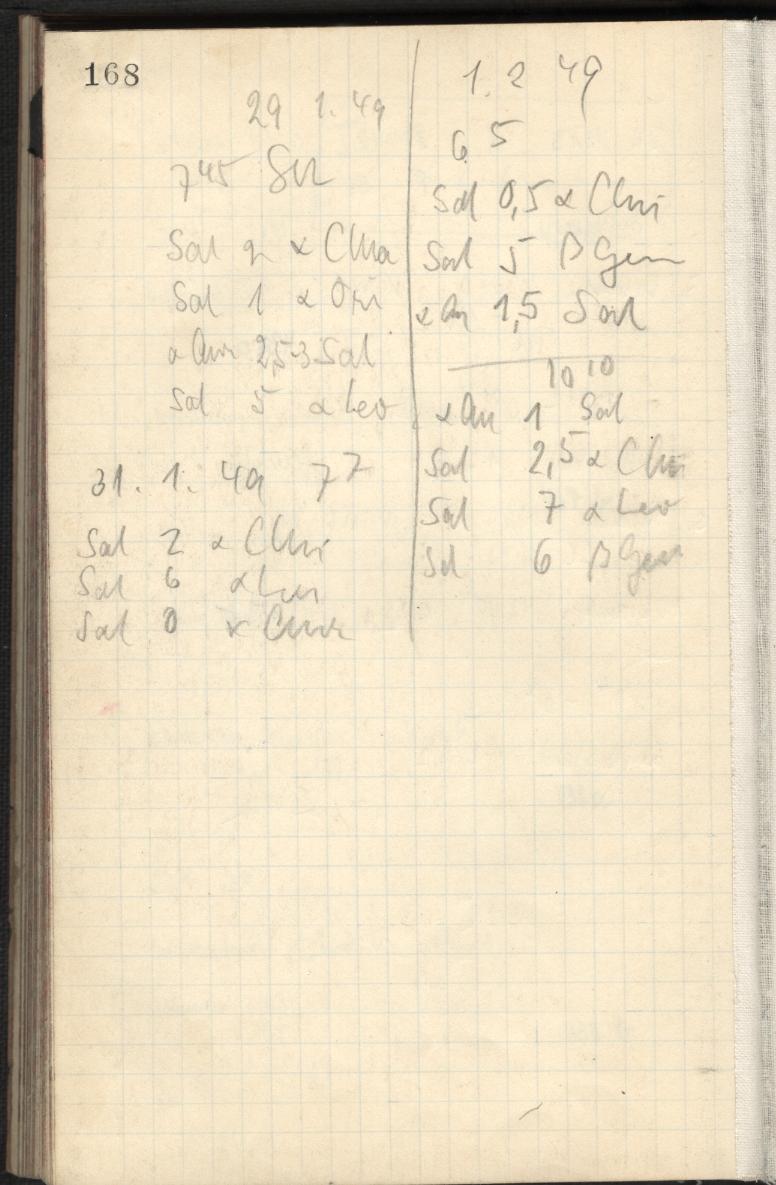 168
29 1. 49
7 45
Sat 2 α CMa
Sat 1 α Ori
α Aur 2,5-3 Sat
Sat 5 α Leo
31. 1. 49 7 7
Sat 2 α CMi
Sat 6 α
Sat 0 α
1. 2 49
6 5
Sat 0,5 α CMi
Sat 5 β Gem
α Au 1,5 Sat
10 10
α Au 1 Sat
Sat 2,5 α CMi
Sat 7 α Leo
Sat 6 β Gem